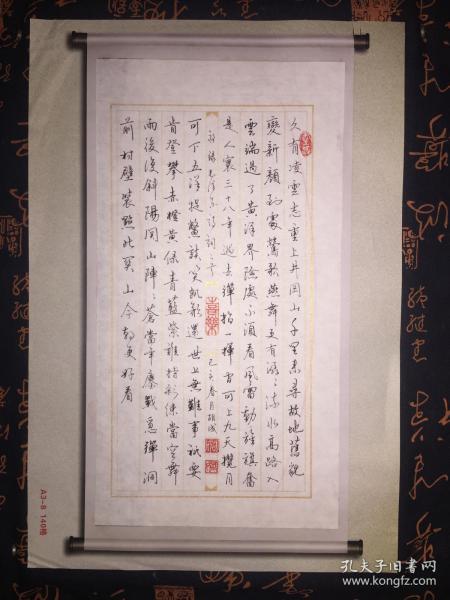 久有凌雲志重上井岡山千里来尋故地舊貌
變新顏到處鶯歌燕舞更有潺〻流水高路入
雲端過了黄洋界險處不須看風雷動旌旗奮
是人寰三十八年過去彈指一揮間可上九天攬月
可下五洋捉鱉談笑凱歌還世上無難事祇要
肯登攀赤橙黄綠青藍紫誰持彩練當空舞
雨後復斜陽関山陣〻蒼當年鏖戰急彈洞
前村壁裝點此関山今朝更好看
毛澤東詩詞二首
喜樂
己亥春月胡成
A3-8 140格
孔夫子旧书网
www.kongfz.com